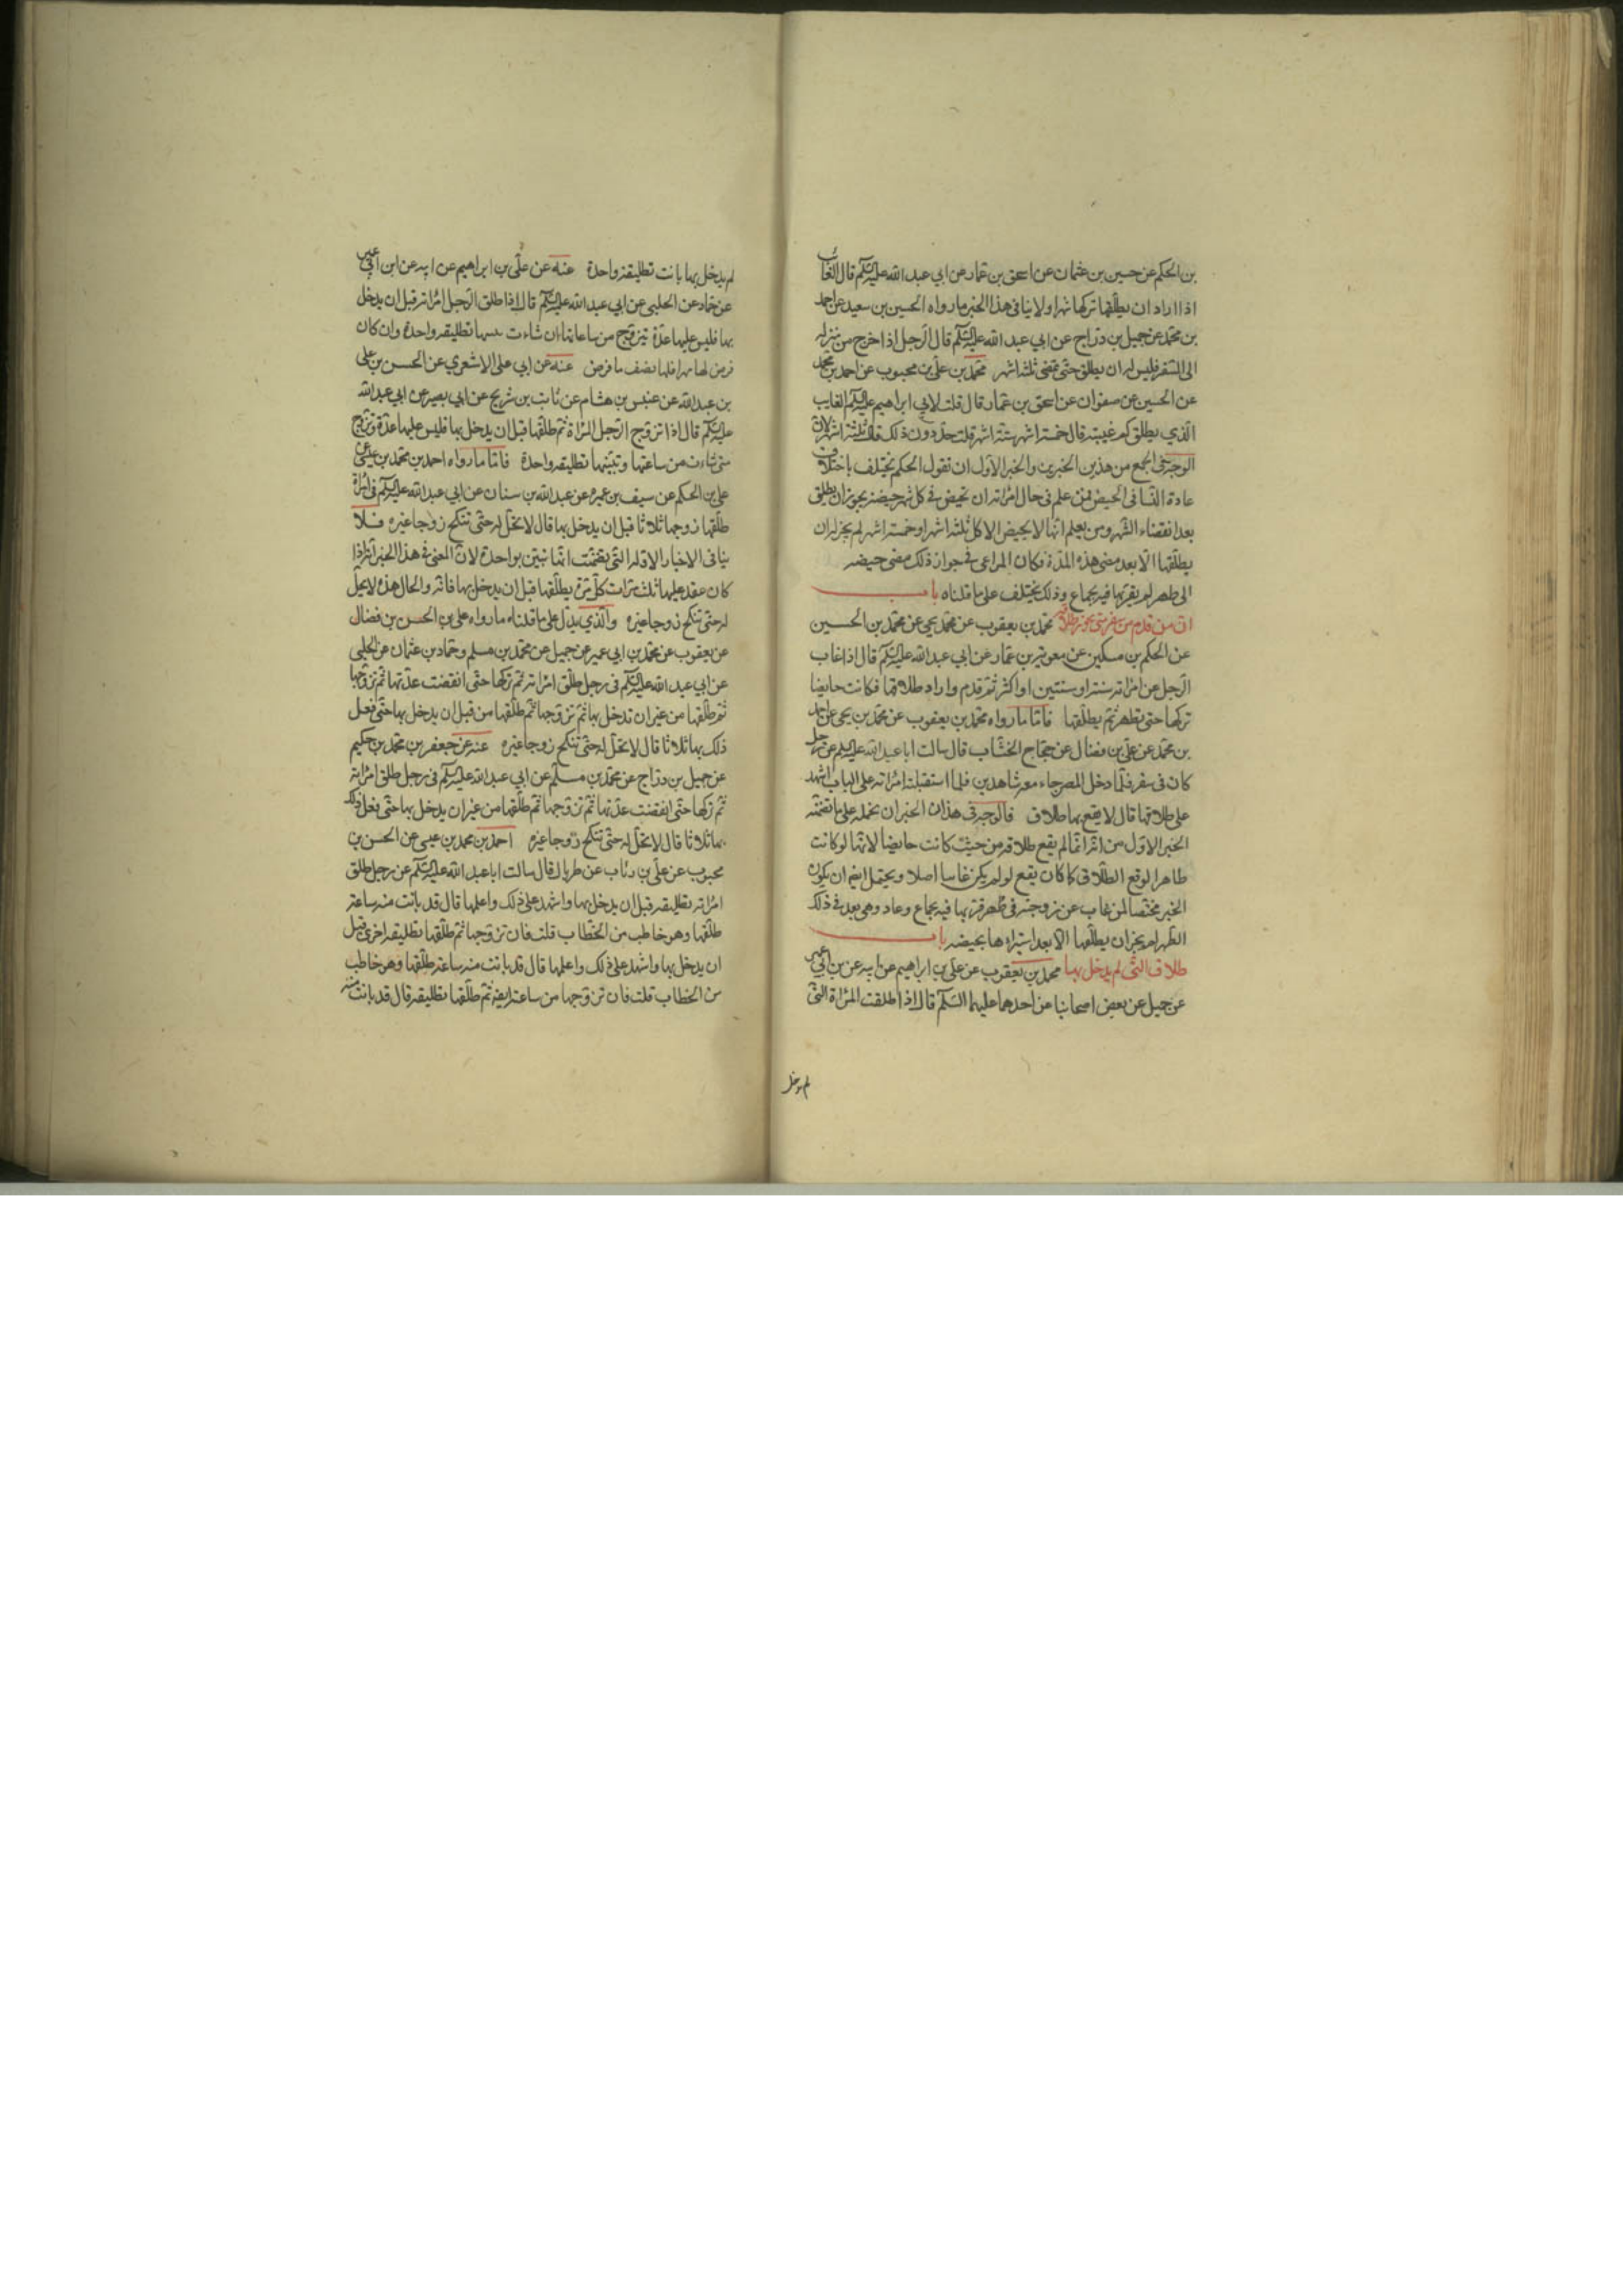 بن الحكم عن حسين بن عثمان عن اسحق بن عمار عن ابي عبد الله عليه السلم قال الغائب
اذا اراد ان يطلقها تركها شهرا ولا ينافى هذا الخبر ما رواه الحسين بن سعيد عن احمد
بن محمد عن جميل بن دراج عن ابي عبد الله عليه السلم قال الرجل اذا خرج من منزله
الى السفر فليس له ان يطلق حتى تمضى ثلثة اشهر محمد بن علي بن محبوب عن احمد بن محمد
عن الحسين عن صفوان عن اسحق بن عمار قال قلت لابي ابراهيم عليه السلم الغايب
الذي يطلق كم غيبته قال خمسة اشهر ستة اشهر قلت حد دون ذلك قال ثلثة اشهر لان
الوجه فى الجمع من هذين الخبرين والخبر الاول ان نقول الحكم يختلف باختلاف
عادة النسا فى الحيض فمن علم فى حال امراته ان تحيض فى كل شهر حيضة يجوز ان يطلق
بعد انقضاء الشهر ومن يعلم انها لا تحيض الا كل ثلثة اشهر او خمسة اشهر لم يجز له ان
يطلقها الا بعد مضى هذه المدة فكان المراعى فى جواز ذلك مضى حيضه
الى طهر لم يقربها فيه بجماع وذلك يختلف على ما قلناه باب
ان من قدم من سفر متى يجوز طلاقه محمد بن يعقوب عن محمد يحى عن محمد بن الحسين
عن الحكم بن مسكين عن معوية بن عمار عن ابي عبد الله عليه السلم قال اذا غاب
الرجل عن امراته سنة او سنتين او اكثر ثم قدم واراد طلاقها فكانت حايضا
تركها حتى تطهر ثم يطلقها فاما ما رواه محمد بن يعقوب عن محمد بن يحى عن احمد
بن محمد عن علي بن فضال عن حجاج الخشاب قال سالت ابا عبد الله عليه السلم عن رجل
كان فى سفر فلما دخل المصر جاء معه شاهدين فلما استقبلته امراته على الباب اشهد
على طلاقها قال لا يقع بها طلاق فالوجه فى هذا الخبر ان نحمله على ما تضمنه
الخبر الاول من انه انما لم يقع طلاقه من حيث كانت حايضا لانها لو كانت
طاهرا لوقع الطلاق كما كان يقع لو لم يكن غايبا اصلا ويحتمل ايضا ان يكون
الخبر مختصا لمن غاب عن زوجته فى طهر قربها فيه بجماع وعاد وهى بعد فى ذلك
الطهر لم يجز ان يطلقها الا بعد استبراءها بحيضه باب
طلاق التى لم يدخل بها محمد بن يعقوب عن علي بن ابراهيم عن ابيه عن بن ابي عمير
عن جميل عن بعض اصحابنا عن احدهما عليهما السلم قال اذا طلقت المراة التى
لم يدخل
لم يدخل بها بانت تطليقة واحدة عنه عن علي بن ابراهيم عن ابيه عن ابن ابي عمير
عن حماد عن الحلبى عن ابي عبد الله عليه السلم قال اذا طلق الرجل امراته قبل ان يدخل
بها فليس عليها عدة تزوج من ساعاتها ان شاءت تبينها تطليقة واحدة وان كان
فرض لها مهرا فلها نصف ما فرض عنه عن ابي علي الاشعري عن الحسن بن على
بن عبد الله عن عبيس بن هشام عن ثابت بن شريح عن ابي بصير عن ابي عبد الله
عليه السلم قال اذا تزوج الرجل المراة ثم طلقها قبل ان يدخل بها فليس عليها عدة وتزوج
متى شاءت من ساعتها وتبينها تطليقة واحدة فاما ما رواه احمد بن محمد بن عيسى عن
على بن الحكم عن سيف بن عميره عن عبد الله بن سنان عن ابي عبد الله عليه السلم فى امراة
طلقها زوجها ثلاثا قبل ان يدخل بها قال لا تحل له حتى تنكح زوجا غيره فلا
ينافى الاخبار الاولة التى تضمنت انها تبين بواحدة لان المعنى فى هذا الخبر انه اذا
كان عقد عليها ثلث مرات كل مرة يطلقها قبل ان يدخل بها فانه والحال هذه لا يحل
له حتى تنكح زوجا غيره والذي يدل على ما قلناه ما رواه على بن الحسن بن فضال
عن يعقوب عن محمد بن ابي عمير عن جميل عن محمد بن مسلم وحماد بن عثمان عن الحلبى
عن ابي عبد الله عليه السلم فى رجل طلق امراته ثم تركها حتى انقضت عدتها ثم تزوجها
ثم طلقها من غير ان تدخل بها ثم تزوجها ثم طلقها من قبل ان يدخل بها حتى فعل
ذلك بها ثلاثا قال لا تحل له حتى تنكح زوجا غيره عنه عن جعفر بن محمد بن حكيم
عن جميل بن دراج عن محمد بن مسلم عن ابي عبد الله عليه السلم فى رجل طلق امراته
ثم تركها حتى انقضت عدتها ثم تزوجها ثم طلقها من غير ان يدخل بها حتى فعل ذلك
بها ثلاثا قال لا تحل له حتى تنكح زوجا غيره احمد بن محمد بن عيسى عن الحسن بن
محبوب عن علي بن رئاب عن طربال قال سالت ابا عبد الله عليه السلم عن رجل طلق
امراته تطليقه قبل ان يدخل بها واشهد على ذلك واعلمها قال قد بانت منه ساعة
طلقها وهو خاطب من الخطاب قلت فان تزوجها ثم طلقها تطليقه اخرى قبل
ان يدخل بها واشهد على ذلك واعلمها قال قد بانت منه ساعة طلقها وهو خاطب
من الخطاب قلت فان تزوجها من ساعته ايضا ثم طلقها تطليقه قال قد بانت منه